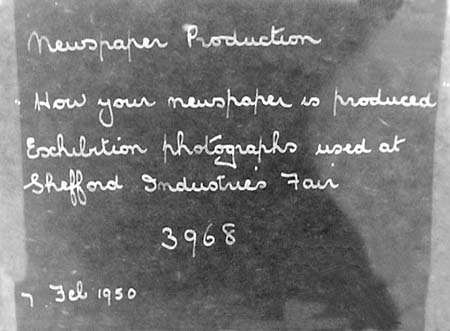 Newspaper Production
How your newspaper is produced
Exhibition photographs used at
Shefford Industries Fair
3968
7 Feb 1950